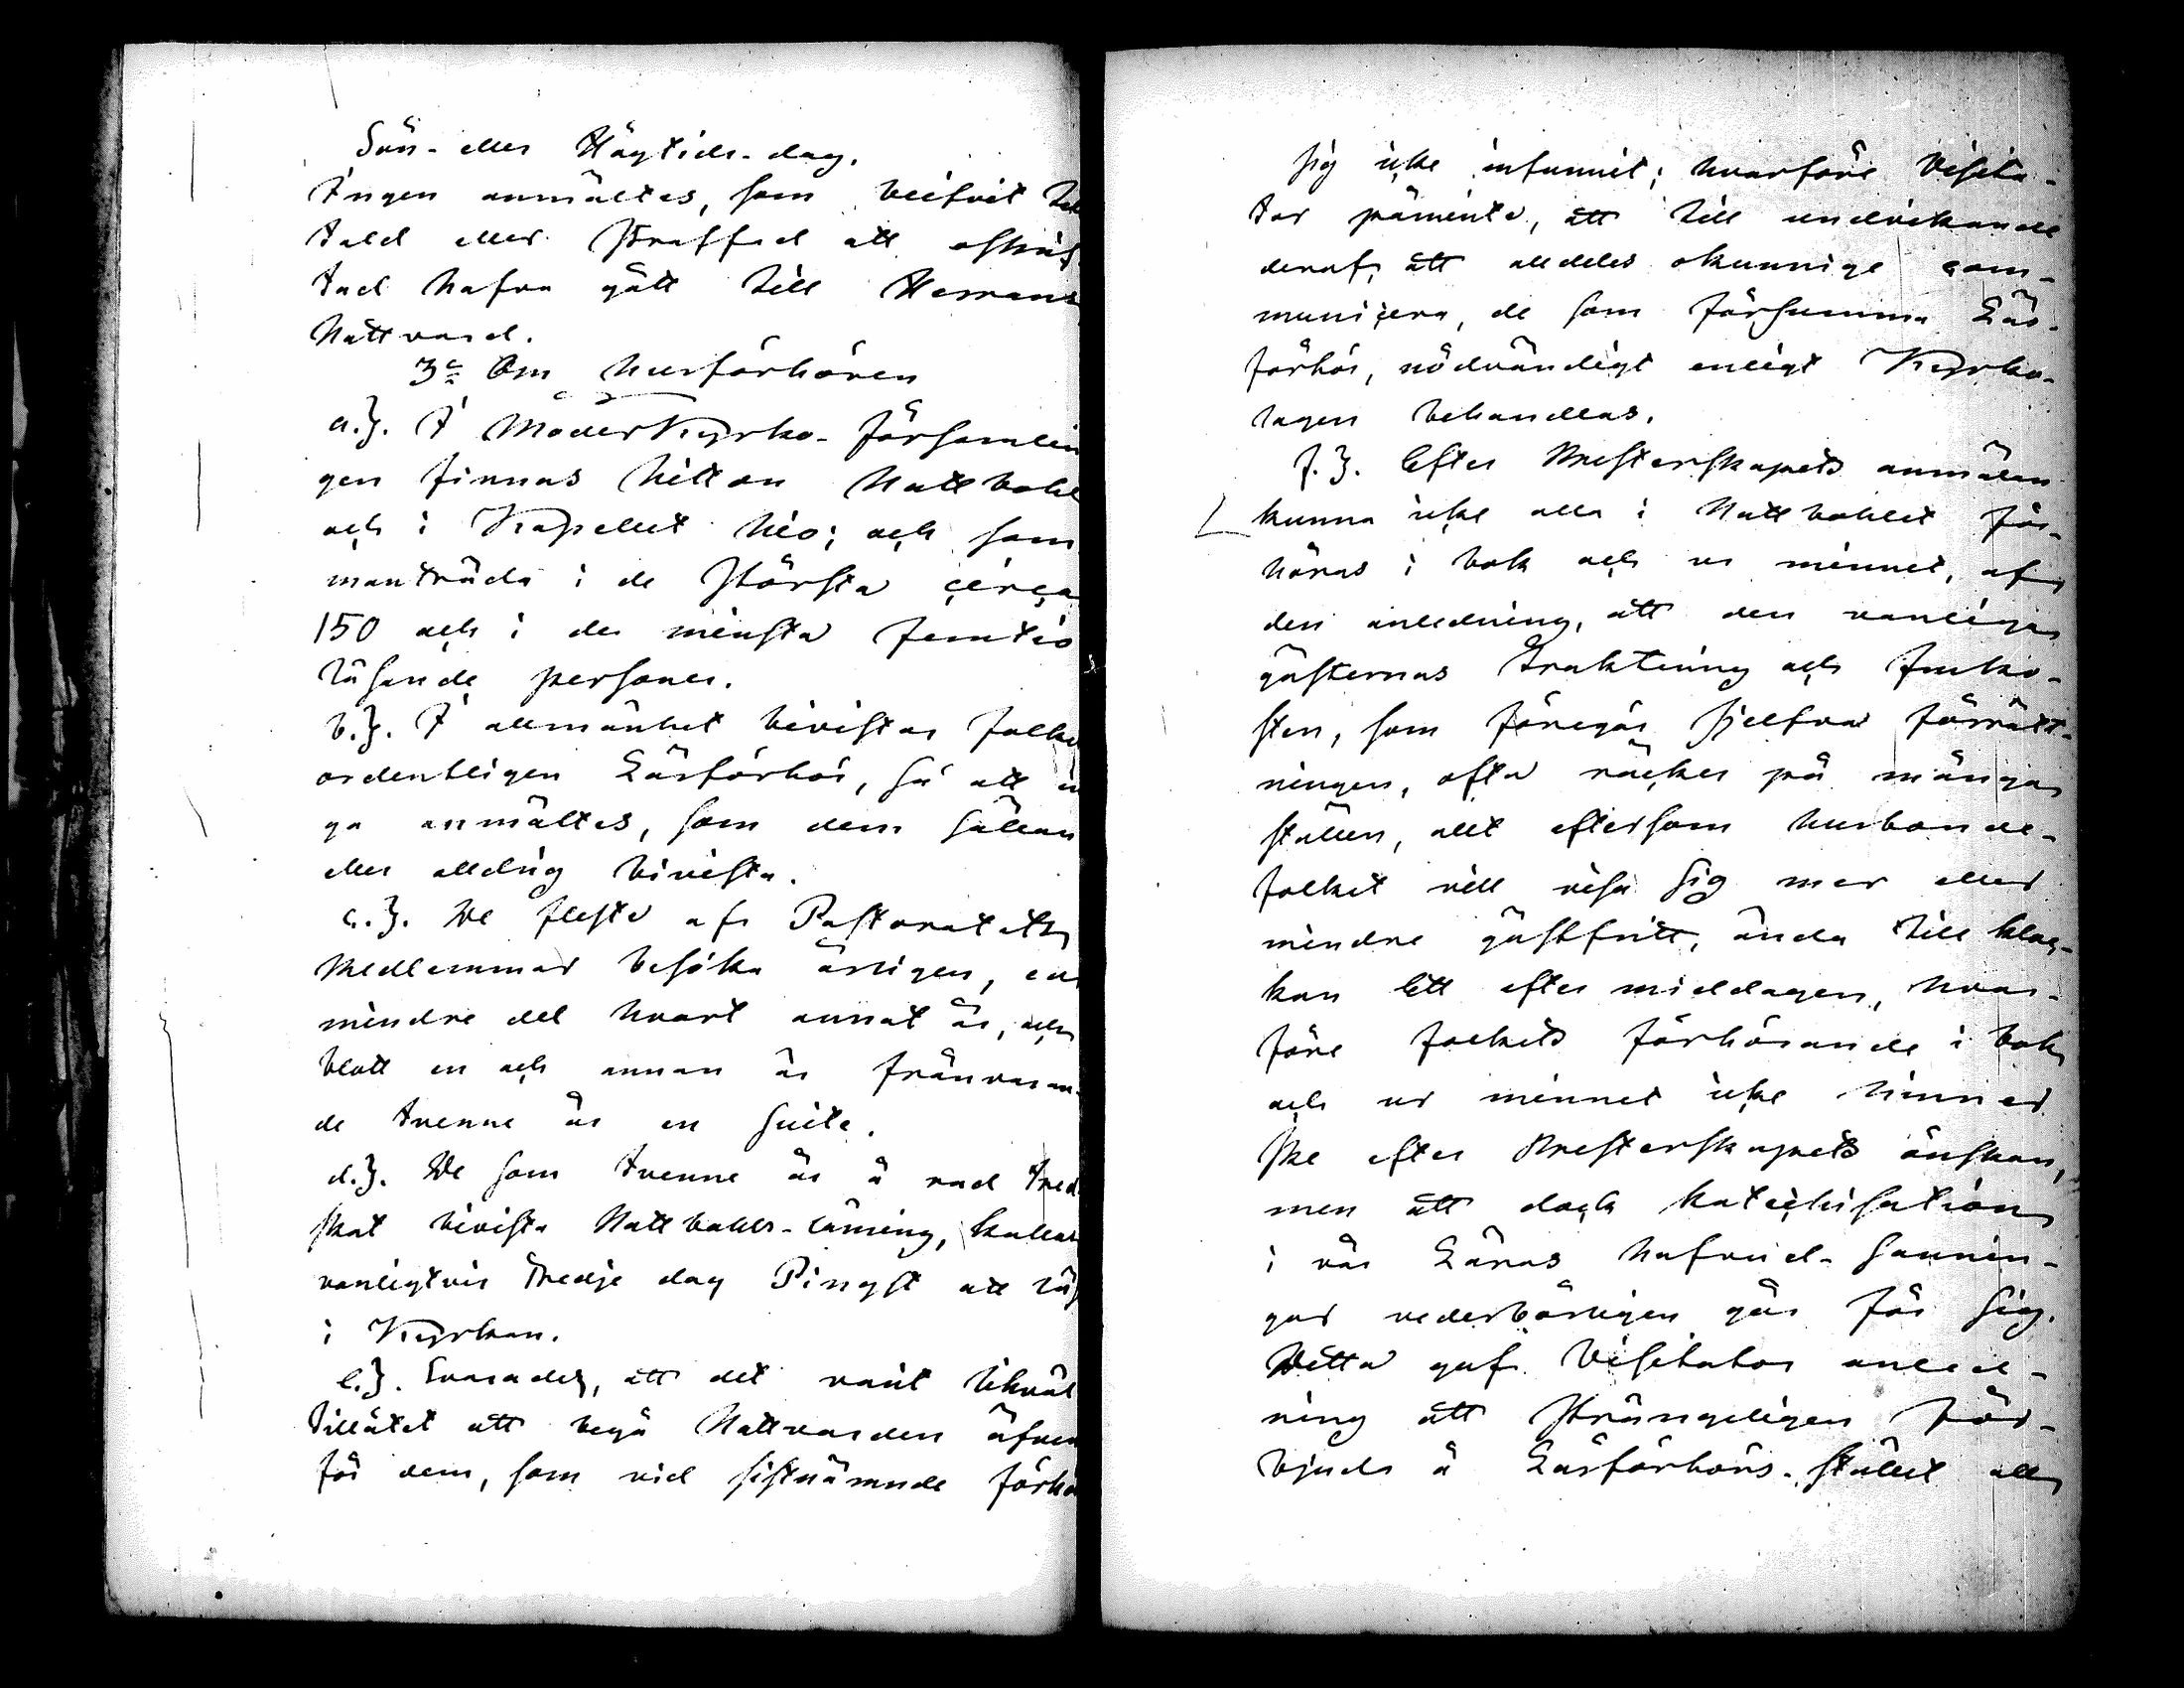 Sön- eller Högtids-dag.
Ingen anmältes, som blifvit til
tald eller straffad att oskrif
tad hafva gått till Herrans
Nattvard.
3º Om husförhören
a.). I Moderkyrko-församlin
gen finnas hitton Nattvohl
och i Kapellet tio; och sam
manträda i de största circa
150 och i de minsta femtio
läsande personer.
b.). I allmänhet bivistas folke
ordentligen Läsförhör, så att in
ga anmältes, som dem sällan
eller alldrig bivista.
c.). De fleste af Pastoratets
Medlemmar besöka årligen, en
mindre del hvart annat år, och
blott en och annan är frånvaran-
de tvenne år en suite.
d.). De som tvenne år å rad tred
skat bivista Nattvohls-läsning, kallas
vanligtvis Tredje dag Pingst att läs
i Kyrkan.
e.). Svarades, att det varit likväl
tillåtet att begå Nattvarden äfven
för dem, som vid sistnämnde förhö
sig icke infunnit; hvarföre Visita-
tor påminte, att till undvikande
deraf, att alldeles okunnige com-
municera, de som försumma Läs-
förhör, nödvändigt enligt Kyrko-
lagen behandlas.
f.). Efter Presterskapets anmälan
kunna icke alla i Nattvohlet för-
höras i bok och ur minnet, af
den anledning, att den vanliga
gästernas Traktering och Fruko-
sten, som föregår sjelfva förrätt-
ningen, ofta räcker på många
ställen, allt eftersom husbonde-
folket vill visa sig mer eller
mindre gästfritt, ända till kloc-
kan Ett efter middagen, hvar-
före folkets förhörande i bok
och ur minnet icke hinner
ske efter Presterskapets önskan,
men att dock katechisation
i vår Läras hufvud-sannin-
gar vederbörligen går för sig.
Detta gaf Visitator anled-
ning att strängeligen för-
bjuda å Läsförhörs-stället all